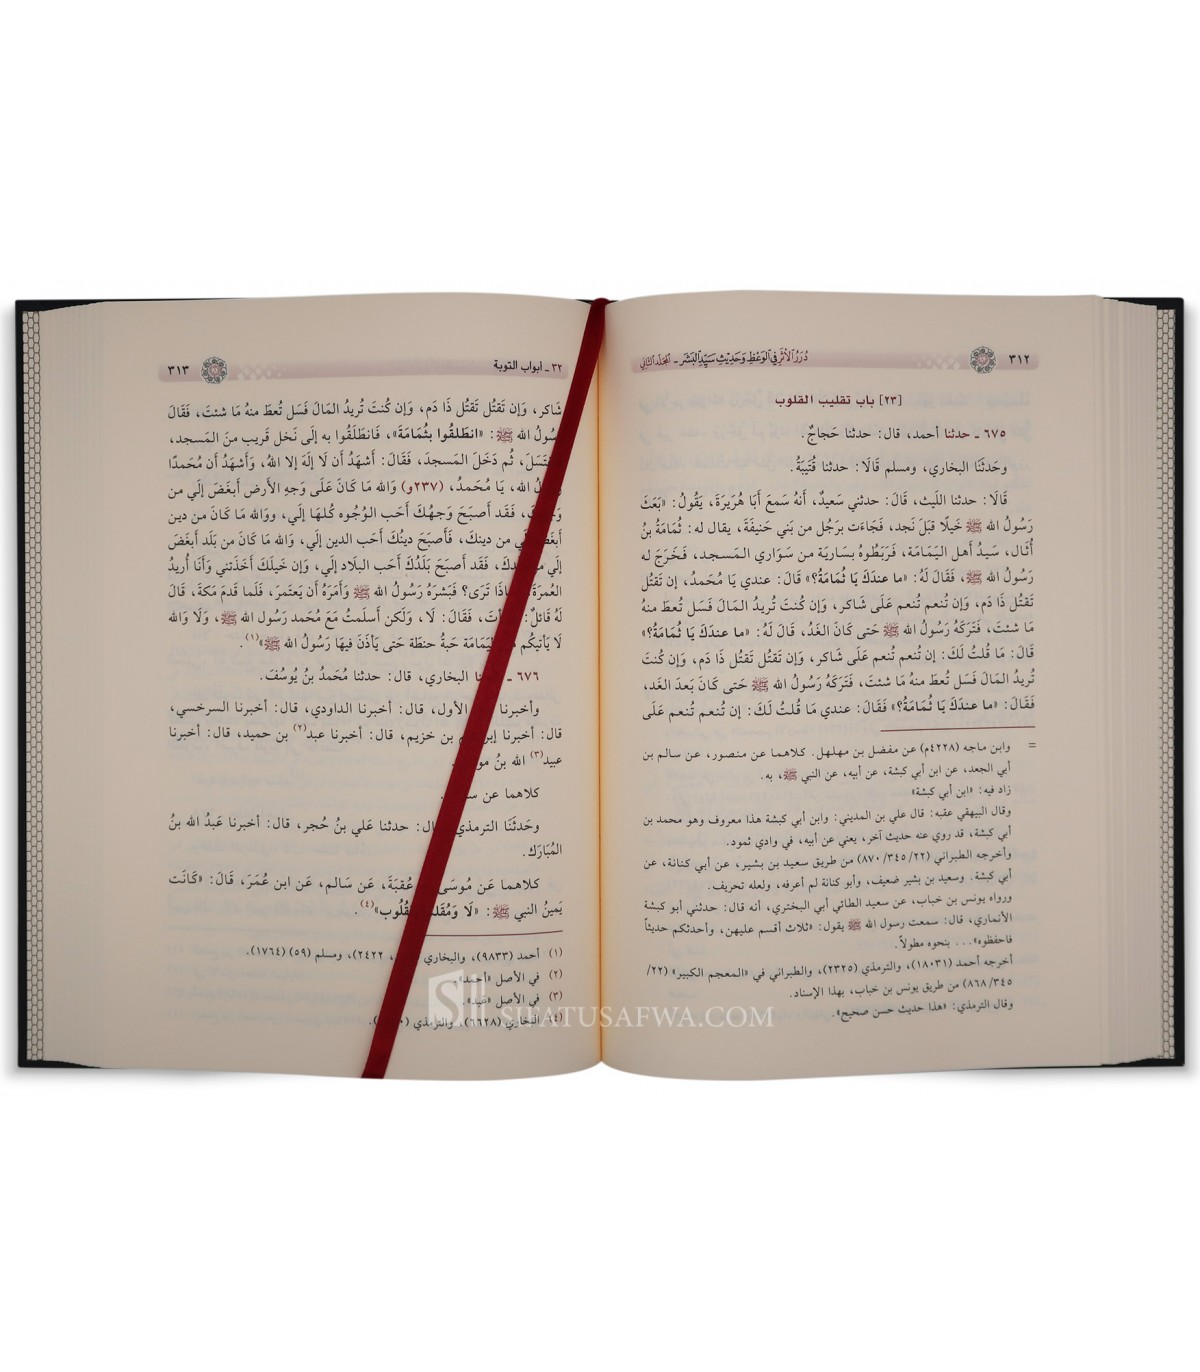 ٣١٢ دُرَرُ الأَثَرِ فِي الوَعْظِ وَحَدِيثِ سَيِّدِ البَشَرِ - المجلد الثاني
[٢٣] باب تقليب القلوب
٦٧٥ ـ حدثنا أحمد، قال: حدثنا حَجاجٌ.
وحَدثنَا البخاري، ومسلم قَالَا: حدثنا قُتَيبَةُ.
قَالَا: حدثنا اللَيث، قَالَ: حدثني سَعيدٌ، أَنهُ سَمعَ أَبَا هُرَيرَةَ، يَقُولُ: «بَعَثَ
رَسُولُ الله ﷺ خَيلًا قبَلَ نَجد، فَجَاءَت برَجُل من بَني حَنيفَةَ، يقال له: ثُمَامَةُ بنُ
أُثَال، سَيدُ أَهل اليَمَامَة، فَرَبَطُوهُ بسَاريَة من سَوَاري المَسجد، فَخَرَجَ له
رَسُولُ الله ﷺ، فَقَالَ لَهُ: «ما عندَكَ يَا ثُمَامَةُ؟» قَالَ: عندي يَا مُحَمدُ، إن تَقتُل
تَقتُل ذَا دَم، وَإن تُنعم تُنعم عَلَى شَاكر، وَإن كُنتَ تُريدُ المَالَ فَسَل تُعطَ منهُ
مَا شئتَ، فَتَرَكَهُ رَسُولُ الله ﷺ حَتى كَانَ الغَدُ، قَالَ لَهُ: «مَا عندَكَ يَا ثُمَامَةُ؟»
قَالَ: مَا قُلتُ لَكَ: إن تُنعم تُنعم عَلَى شَاكر، وَإن تَقتُل تَقتُل ذَا دَم، وَإن كُنتَ
تُريدُ المَالَ فَسَل تُعطَ منهُ مَا شئتَ، فَتَرَكَهُ رَسُولُ الله ﷺ حَتى كَانَ بَعدَ الغَد،
فَقَالَ: «مَا عندَكَ يَا ثُمَامَةُ؟» فَقَالَ: عندي مَا قُلتُ لَكَ: إن تُنعم تُنعم عَلَى
= وابن ماجه (٤٢٢٨م) عن مفضل بن مهلهل. كلاهما عن منصور، عن سالم بن
أبي الجعد، عن ابن أبي كبشة، عن أبيه، عن النبي ﷺ، به.
زاد فيه: «ابن أبي كبشة»
وقال البيهقي عقبه: قال علي بن المديني: وابن أبي كبشة هذا معروف وهو محمد بن
أبي كبشة، قد روي عنه حديث آخر، يعني عن أبيه، في وادي ثمود.
وأخرجه الطبراني (٢٢/ ٣٤٥/ ٨٧٠) من طريق سعيد بن بشير، عن أبي كنانة، عن
أبي كبشة. وسعيد بن بشير ضعيف، وأبو كنانة لم أعرفه، ولعله تحريف.
ورواه يونس بن خباب، عن سعيد الطائي أبي البختري، أنه قال: حدثني أبو كبشة
الأنماري، قال: سمعت رسول الله ﷺ يقول: «ثلاث أقسم عليهن، وأحدثكم حديثاً
فاحفظوه»... بنحوه مطولاً.
أخرجه أحمد (١٨٠٣١)، والترمذي (٢٣٢٥)، والطبراني في «المعجم الكبير» (٢٢/
٣٤٥/ ٨٦٨) من طريق يونس بن خباب، بهذا الإسناد.
وقال الترمذي: «هذا حديث حسن صحيح».
٣٢ ـ أبواب التوبة ٣١٣
شَاكر، وَإن تَقتُل تَقتُل ذَا دَم، وَإن كُنتَ تُريدُ المَالَ فَسَل تُعطَ منهُ مَا شئتَ، فَقَالَ
الله ﷺ: «انطَلقُوا بثُمَامَةَ»، فَانطَلَقُوا به إلَى نَخل قَريب منَ المَسجد،
ثُم دَخَلَ المَسجدَ، فَقَالَ: أَشهَدُ أَن لَا إلَهَ إلا اللهُ، وَأَشهَدُ أَن مُحَمدًا
الله، يَا مُحَمدُ، (٢٣٧و) وَالله مَا كَانَ عَلَى وَجه الأَرض أَبغَضَ إلَي من
فَقَد أَصبَحَ وَجهُكَ أَحَب الوُجُوه كُلهَا إلَي، ووَالله مَا كَانَ من دين
من دينكَ، فَأَصبَحَ دينُكَ أَحَب الدين إلَي، وَالله مَا كَانَ من بَلَد أَبغَضَ
إلَي فَقَد أَصبَحَ بَلَدُكَ أَحَب البلَاد إلَي، وَإن خَيلَكَ أَخَذَتني وَأَنَا أُريدُ
العُمرَةَ، تَرَى؟ فَبَشرَهُ رَسُولُ الله ﷺ وَأَمَرَهُ أَن يَعتَمرَ، فَلَما قَدمَ مَكةَ، قَالَ
لَهُ قَائلٌ: فَقَالَ: لَا، وَلَكن أَسلَمتُ مَعَ مُحَمد رَسُول الله ﷺ، وَلَا وَالله
لَا يَأتيكُم اليَمَامَة حَبةُ حنطَة حَتى يَأذَنَ فيهَا رَسُولُ الله ﷺ»(١).
٦٧٦ ـ البخاري، قال: حدثنا مُحَمدُ بنُ يُوسُفَ.
وأخبرنا الأول، قال: أخبرنا الداودي، قال: أخبرنا السرخسي،
قال: أخبرنا بن خزيم، قال: أخبرنا عبد(٢) بن حميد، قال: أخبرنا
عبيد(٣) الله بنُ
كلاهما عن
وحَدثنَا الترمذي، قال: حدثنا عَلي بنُ حُجر، قال: أخبرنا عَبدُ الله بنُ
المُبَارَك.
كلاهما عَن مُوسَى عُقبَةَ، عَن سَالم، عَن ابن عُمَرَ، قَالَ: «كَانَت
يَمينُ النبي ﷺ: «لَا وَمُقَلب القُلُوب»(٤).
(١) أحمد (٩٨٣٣)، والبخاري ٢٤٢٢)، ومسلم (٥٩) (١٧٦٤).
(٢) في الأصل «أحمد».
(٣) في الأصل «عبد».
(٤) البخاري (٦٦٢٨)، والترمذي
SIFATUSAFWA.COM